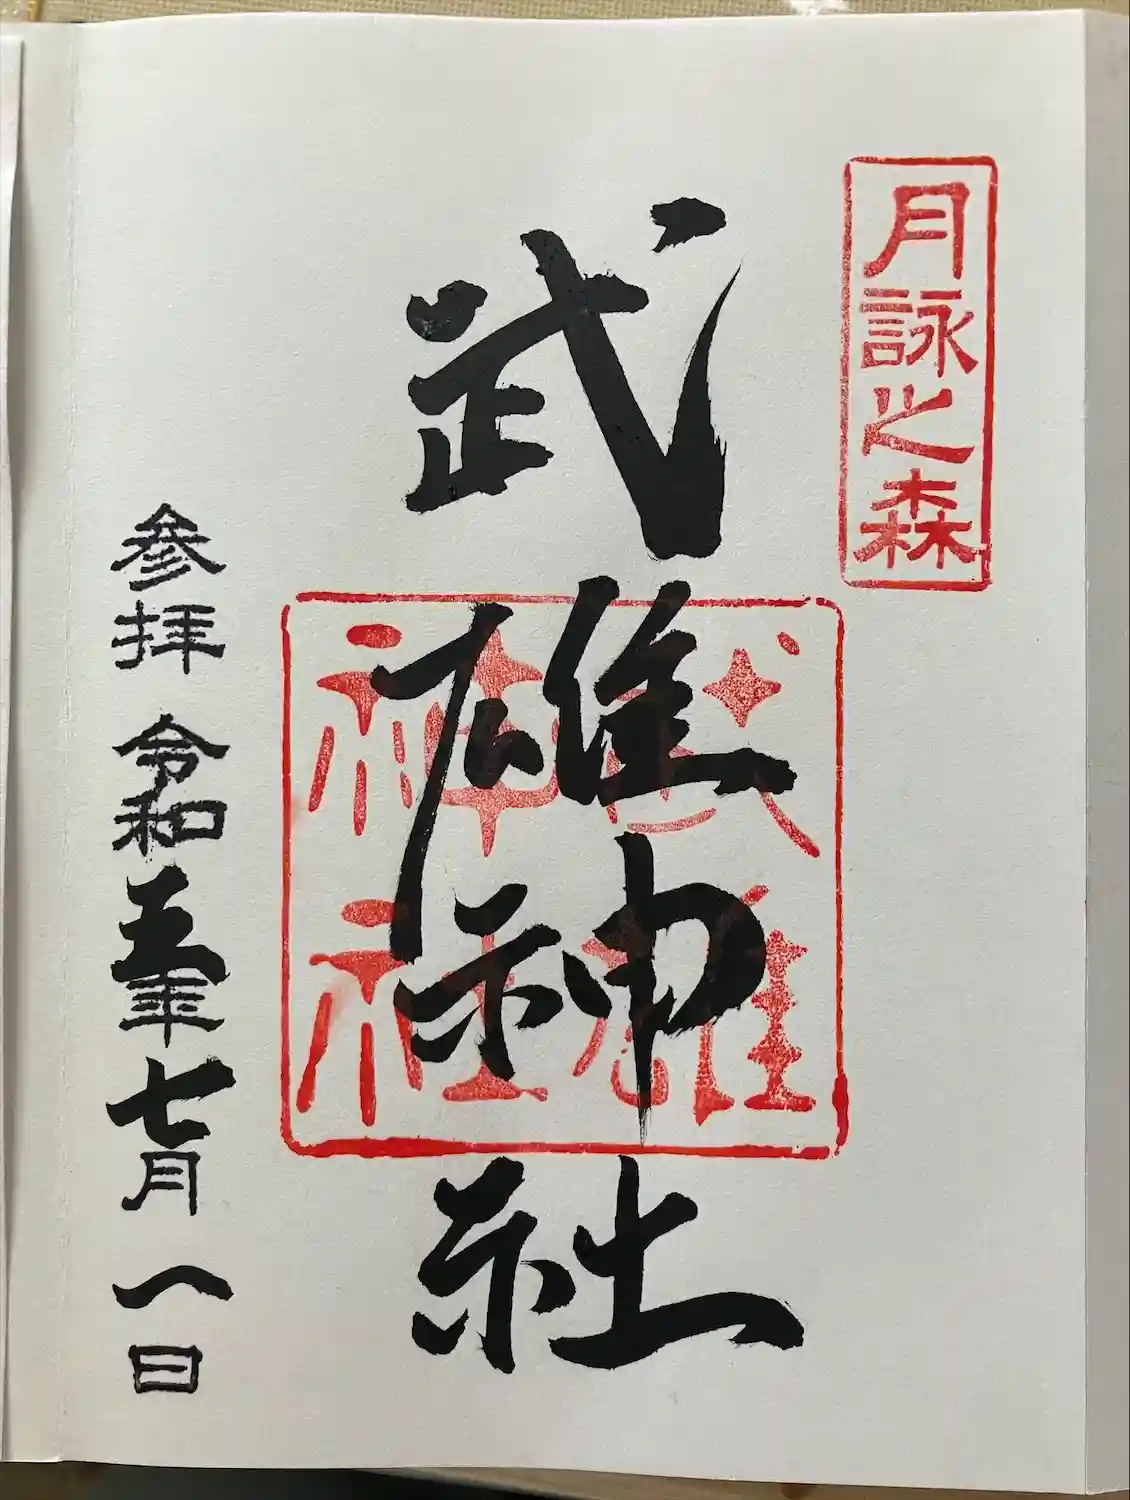 月詠之森
武雄神社
武雄
神社
参拝 令和五年七月一日